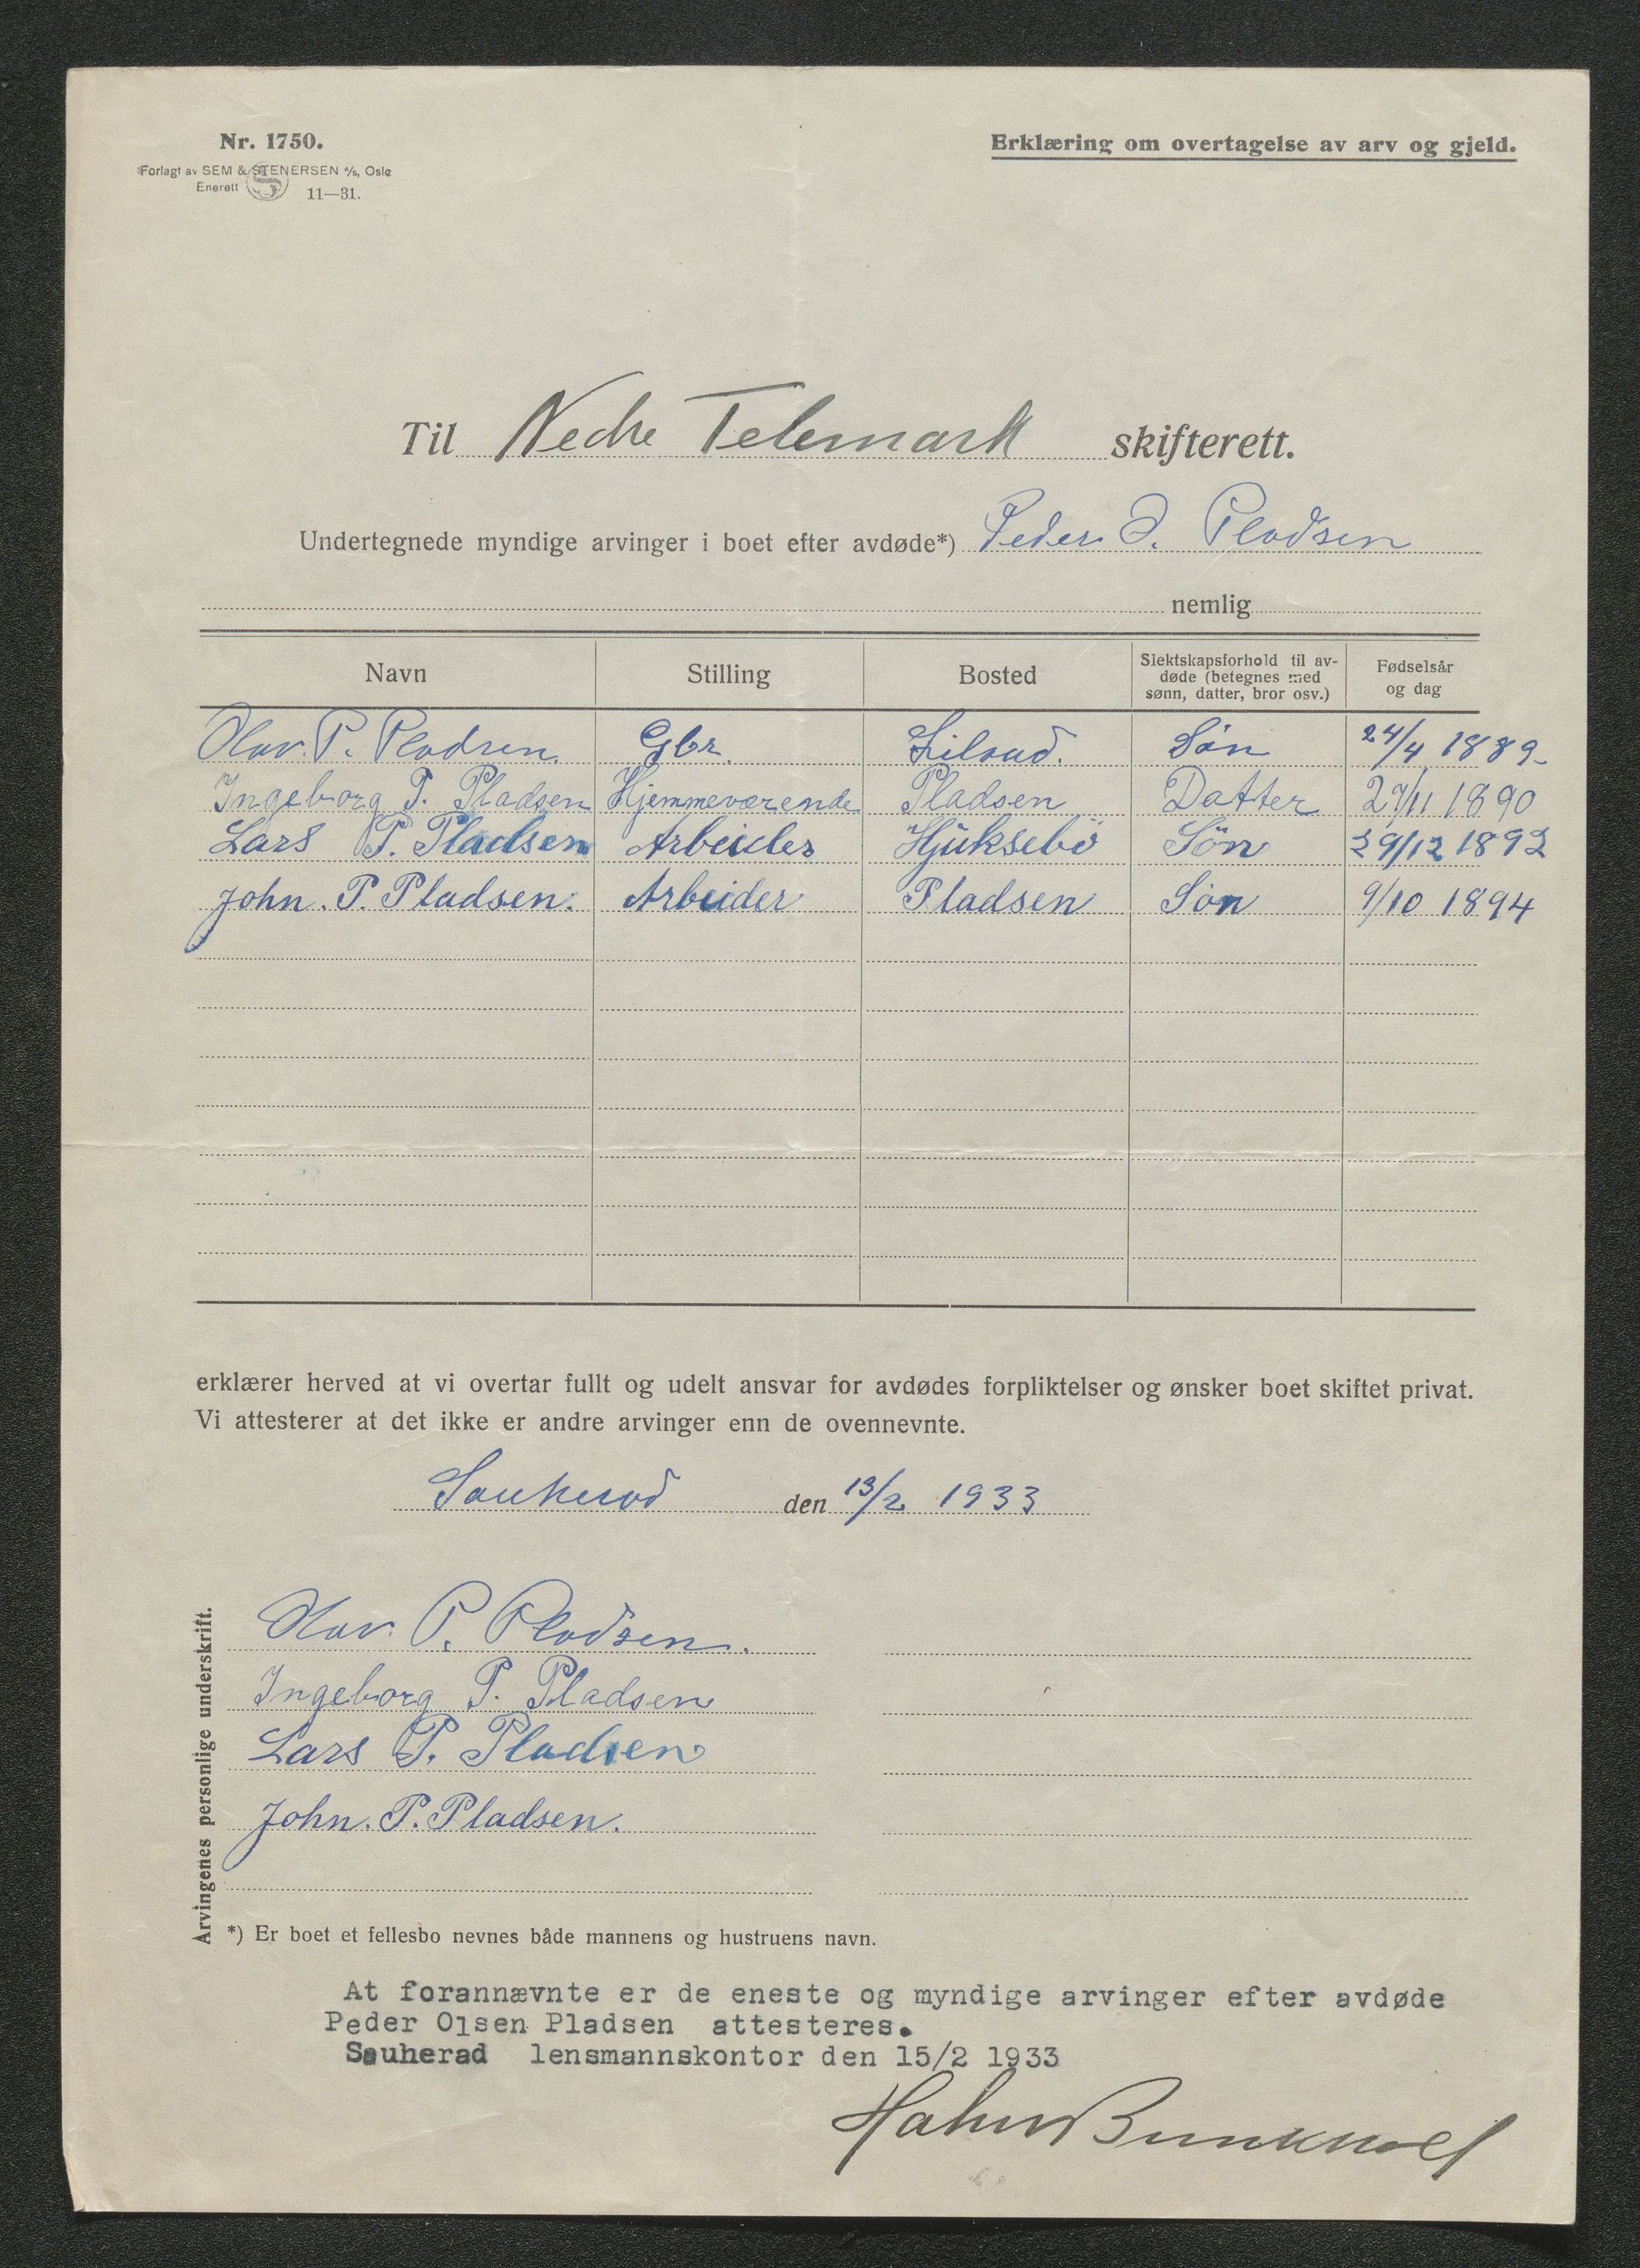 Nr. 1750.
Forlagt av SEM & STENERSEN A/S, Oslo
Enerett S 11—31.
Erklæring om overtagelse av arv og gjeld.
Til Nedre Telemark skifterett.
Undertegnede myndige arvinger i boet efter avdøde*) Peder O. Pladsen
nemlig
Navn Stilling Bosted Slektskapsforhold til avdøde (betegnes med sønn, datter, bror osv.) Fødselsår og dag
Olav P. Pladsen Gbr. Søn 24/4 1889
Ingeborg P. Pladsen Hjemmeværende Pladsen Datter 29/11 1890
Lars P. Pladsen Arbeider Hjuksebö Sön 29/12 1892
John. P. Pladsen. Arbeider Pladsen Søn 9/10 1894
erklærer herved at vi overtar fullt og udelt ansvar for avdødes forpliktelser og ønsker boet skiftet privat.
Vi attesterer at det ikke er andre arvinger enn de ovennevnte.
Sauherad den 13/2 1933
Arvingenes personlige underskrift.
Olav P. Pladsen.
Ingeborg P. Pladsen
Lars P. Pladsen
John. P. Pladsen.
*) Er boet et fellesbo nevnes både mannens og hustruens navn.
At forannævnte er de eneste og myndige arvinger efter avdøde
Peder Olsen Pladsen attesteres.
Sauherad lensmannskontor den 15/2 1933